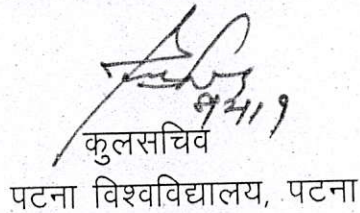 कुलसचिव
पटना विश्वविद्यालय, पटना